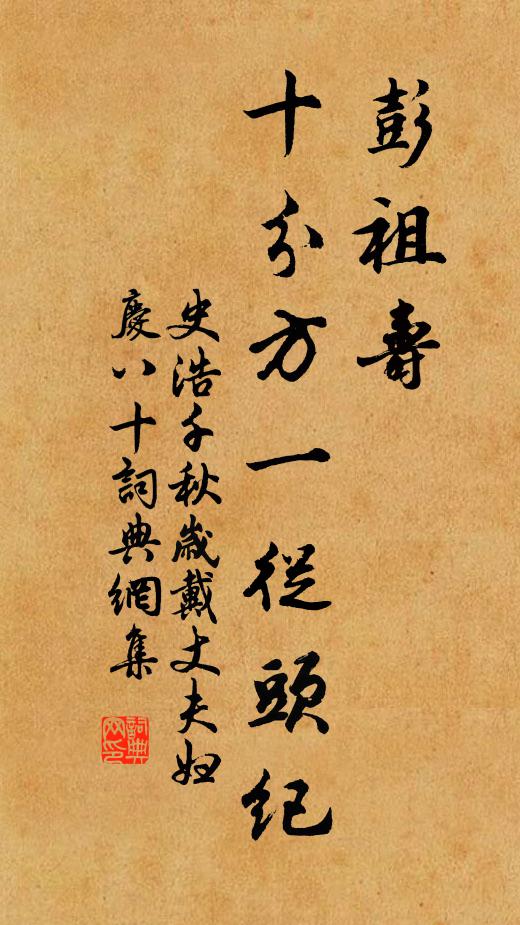 彭祖壽
十分方一從頭紀
史浩千秋歲戴丈夫婦
慶八十詞典網集
詞典網印